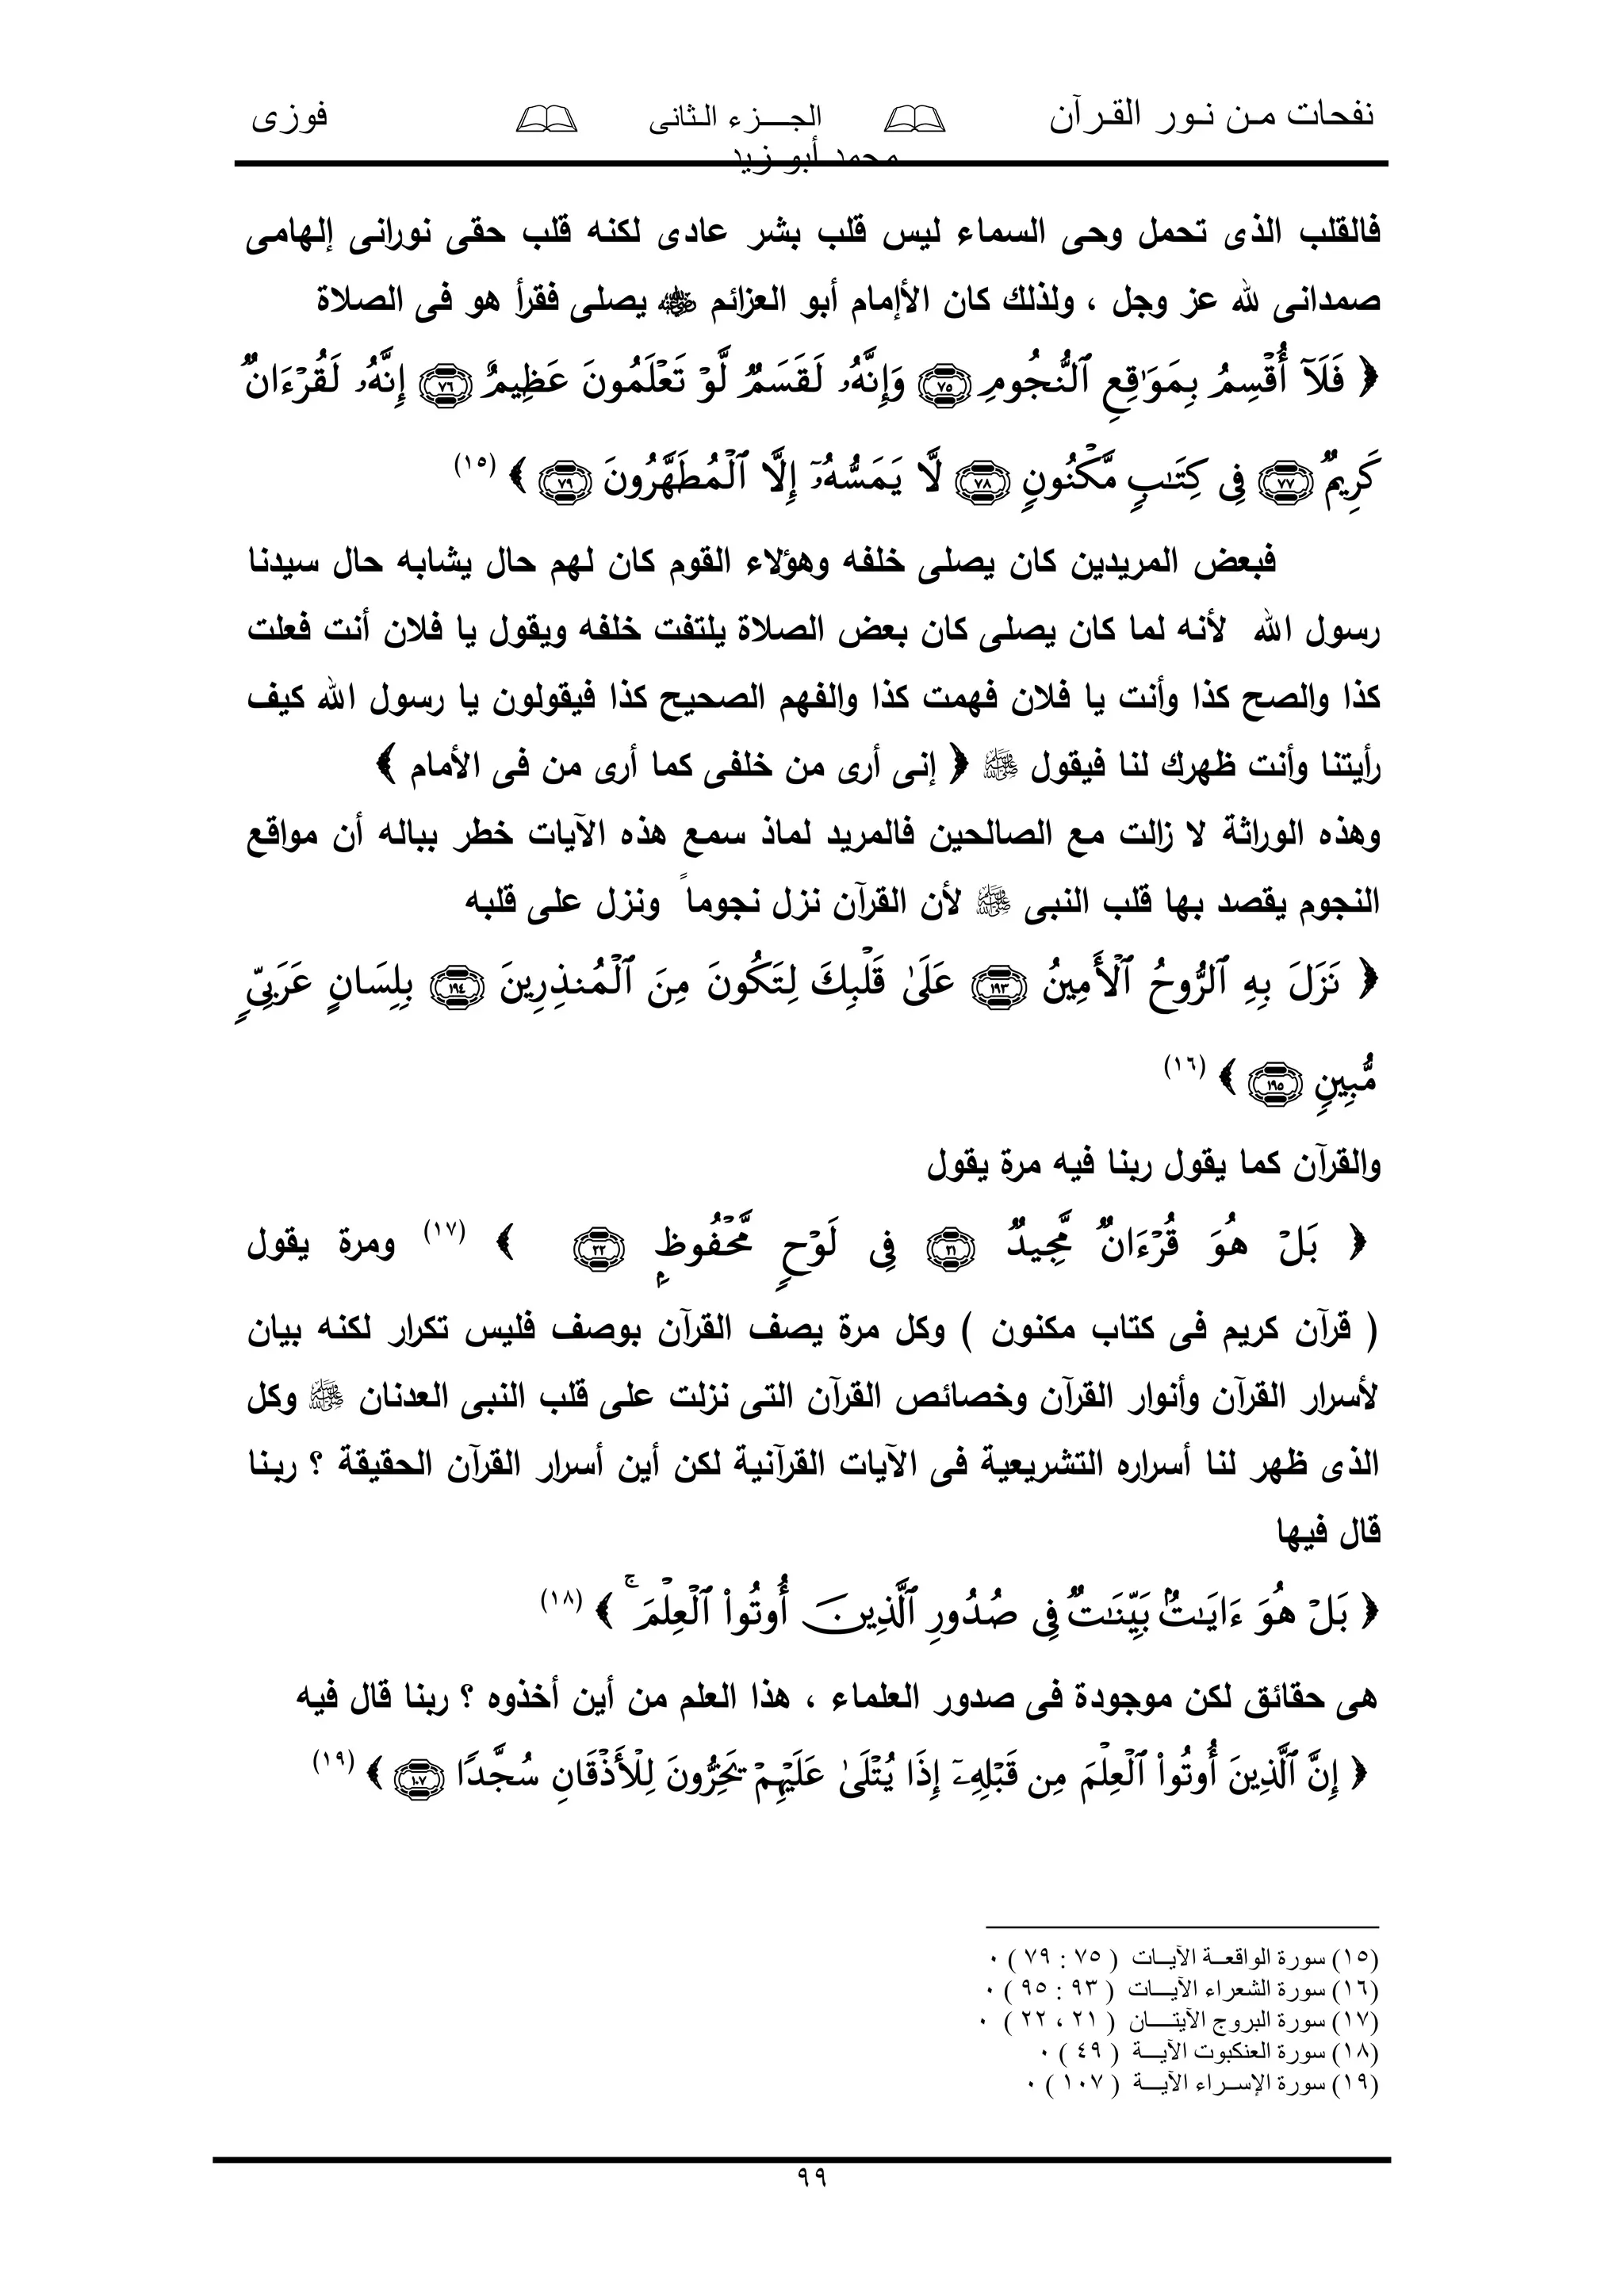 نفحات مـن نـور القـرآن 🕮 الجـــــزء الـثانى 🕮 فوزى
محمد أبو زيد
فالقلب الذى تحمل وحى السماء ليس قلب بشر عادى لكنه قلب حقى نورانى إلهامى
صمدانى لله عز وجل ، ولذلك كان الأإمام أبو العزائم يصلى فقرأ هو فى الصلاة
﴿ فَلَآ أُقۡسِمُ بِمَوَٰقِعِ ٱلنُّجُومِ ٧٥ وَإِنَّهُۥ لَقَسَمٞ لَّوۡ تَعۡلَمُونَ عَظِيمٌ ٧٦ إِنَّهُۥ لَقُرۡءَانٞ
كَرِيمٞ ٧٧ فِى كِتَٰبٖ مَّكۡنُونٖ ٧٨ لَّا يَمَسُّهُۥٓ إِلَّا ٱلۡمُطَهَّرُونَ ٧٩ ﴾ (١٥)
فبعض المريدين كان يصلى خلفه وهؤلاء القوم كان لهم حال يشابه حال سيدنا
رسول الله لأنه لما كان يصلى كان بعض الصلاة يلتفت خلفه ويقول يا فلان أنت فعلت
كذا والصح كذا وأنت يا فلان فهمت كذا والفهم الصحيح كذا فيقولون يا رسول الله كيف
رأيتنا وأنت ظهرك لنا فيقول ﷺ ﴿ إنى أرى من خلفى كما أرى من فى الأمام ﴾
وهذه الوراثة لا زالت مع الصالحين فالمريد لماذ سمع هذه الآيات خطر بباله أن مواقع
النجوم يقصد بها قلب النبى ﷺ لأن القرآن نزل نجوماً ونزل على قلبه
﴿ نَزَلَ بِهِ ٱلرُّوحُ ٱلۡأَمِينُ ١٩٣ عَلَىٰ قَلۡبِكَ لِتَكُونَ مِنَ ٱلۡمُنذِرِينَ ١٩٤ بِلِسَانٍ عَرَبِىّٖ
مُّبِينٖ ١٩٥ ﴾ (١٦)
والقرآن كما يقول ربنا فيه مرة يقول
﴿ بَلۡ هُوَ قُرۡءَانٞ مَّجِيدٞ ٢١ فِى لَوۡحٖ مَّحۡفُوظِۭ ٢٢ ﴾ (١٧) ومرة يقول
( قرآن كريم فى كتاب مكنون ) وكل مرة يصف القرآن بوصف فليس تكرار لكنه بيان
لأسرار القرآن وأنوار القرآن وخصائص القرآن التى نزلت على قلب النبى العدنان ﷺ وكل
الذى ظهر لنا أسراره التشريعية فى الآيات القرآنية لكن أين أسرار القرآن الحقيقة ؟ ربنا
قال فيها
﴿ بَلۡ هُوَ ءَايَٰتُۢ بَيِّنَٰتٞ فِى صُدُورِ ٱلَّذِينَ أُوتُواْ ٱلۡعِلۡمَۚ ﴾ (١٨)
هى حقائق لكن موجودة فى صدور العلماء ، هذا العلم من أين أخذوه ؟ ربنا قال فيه
﴿ إِنَّ ٱلَّذِينَ أُوتُواْ ٱلۡعِلۡمَ مِن قَبۡلِهِۦٓ إِذَا يُتۡلَىٰ عَلَيۡهِمۡ يَخِرُّونَ لِلۡأَذۡقَانِ سُجَّدٗا ١٠٧ ﴾ (١٩)
(١٥) سورة الواقعــة الآيــات ( ٧٥ : ٧٩ ) ٠
(١٦) سورة الشعراء الآيـــات ( ٩٣ : ٩٥ ) ٠
(١٧) سورة البروج الآيتــــان ( ٢١ ، ٢٢ ) ٠
(١٨) سورة العنكبوت الآيـــة ( ٤٩ ) ٠
(١٩) سورة الإســراء الآيـــة ( ١٠٧ ) ٠
٩٩